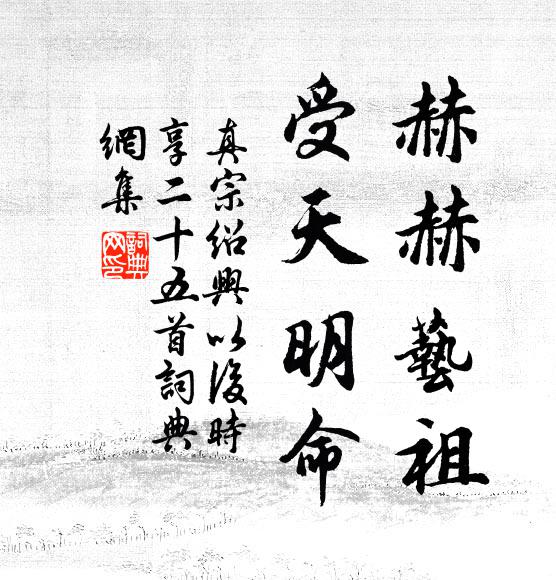 赫赫藝祖
受天明命
真宗紹興以後時
享二十五首詞典
網集
詞典
网印